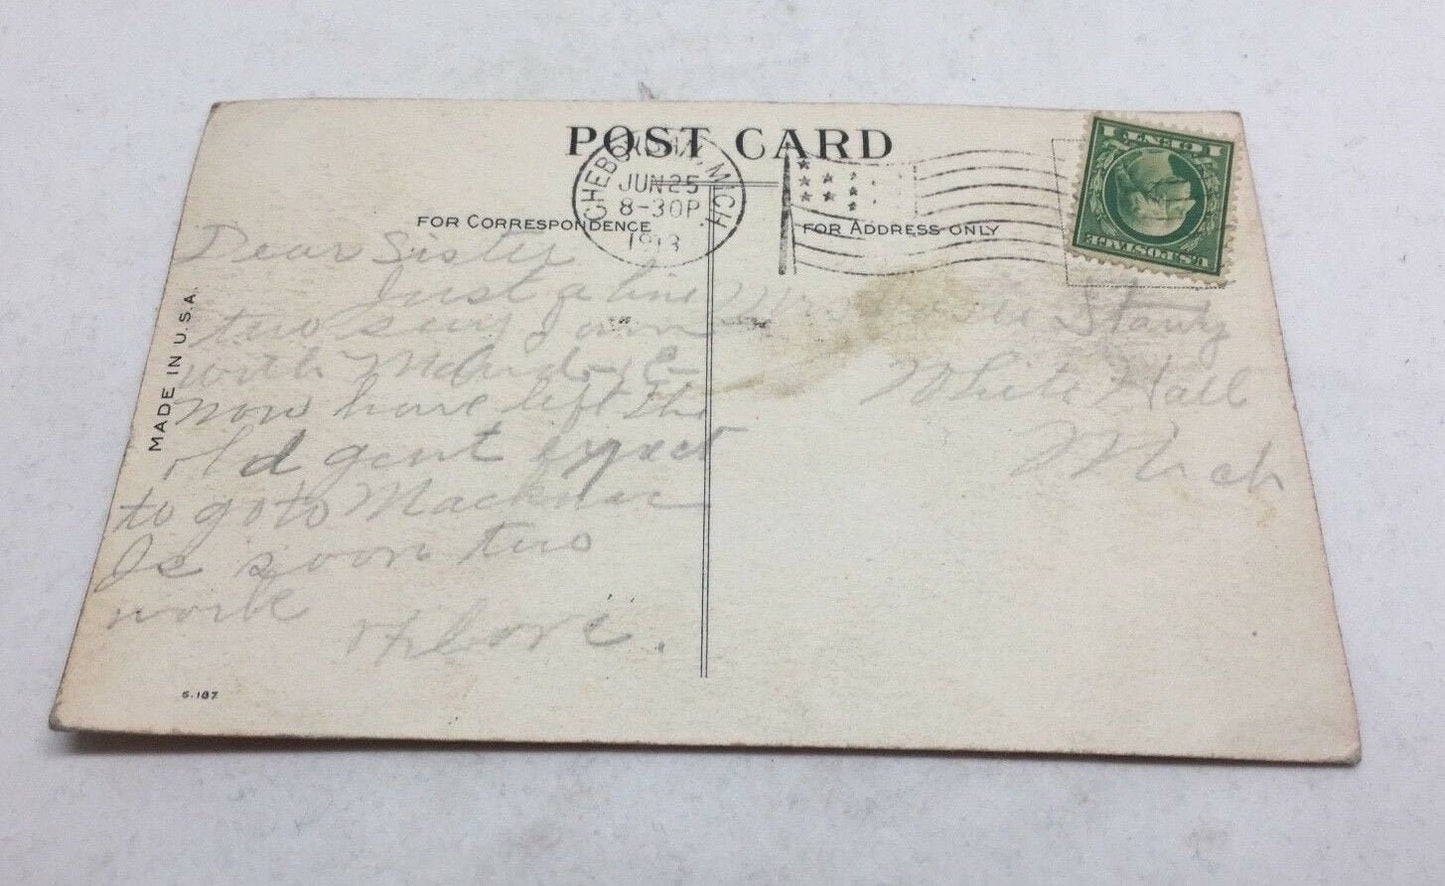 POST CARD
CHEBOYGAN, MICH.
JUN 25
8-30P
1913
FOR CORRESPONDENCE
FOR ADDRESS ONLY
MADE IN U.S.A.
Dear Sister
Just a line
two say I am
with
now have left the
old gent expect
to go to
Is soon two
work
White Hall
Mich
1 CENT 1
U.S. POSTAGE
S.187